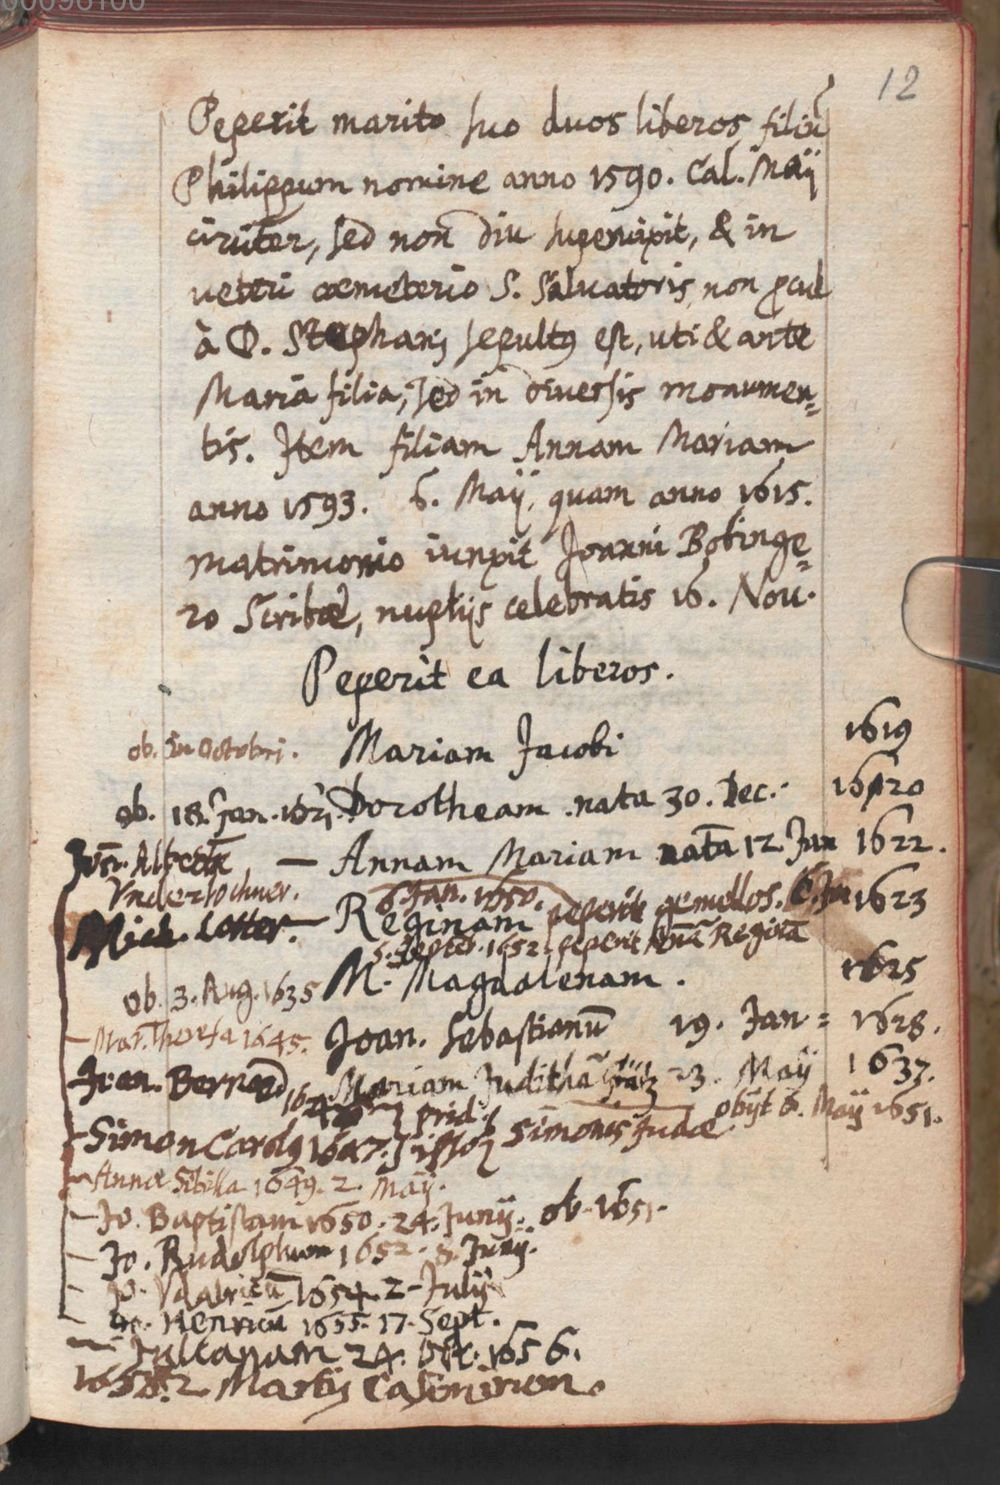 12
Peperit marito suo duos liberos filiū
Philippum nomine anno 1590. Cal. Maij
circiter, sed non diu supervixit, & in
veteri coemeterio S. Salvatoris non procul
à D. Stephani sepultus est, uti & ante
Maria filia, sed in diversis monumen=
tis. Item filiam Annam Mariam
anno 1593. 6. Maij, quam anno 1615.
matrimonio iunxit Joanni Bobinge=
ro Scribae, nuptijs celebratis 16. Nov.
Peperit ea liberos.
ob. in Octobri. Mariam Jacobi 1619
ob. 18. Jan. 1621. Dorotheam nata 30. Dec. 1620
Annam Mariam nata 12. Jan 1622.
Underlochner. 6 Jan. 1650. peperit gemellos.
Mich. Lotter. — Reginam 1623
5. Septer. 1652. peperit Reginā
M. Magdalenam. 1625
ob. 3. Aug. 1635
Mar. Theresa 1645. Joan. Sebastianū 19. Jan = 1628.
Joan. Bernard Mariam Judithā 23. Maij 1637.
obijt 6. Maij 1651.
Simon Carolus 1647. prid. Simonis Judae
Anna Sibilla 1649. 2. Maij.
Jo. Baptistam 1650. 24. Junij. ob. 1651.
Jo. Rudolphum 1652. 8. Junij.
Jo. Udalricū 1654. 2 Julij
Jo. Henricū 1655. 17. Sept.
Julianam 24. Oct. 1656.
1658. 2 Martij Casimirum.